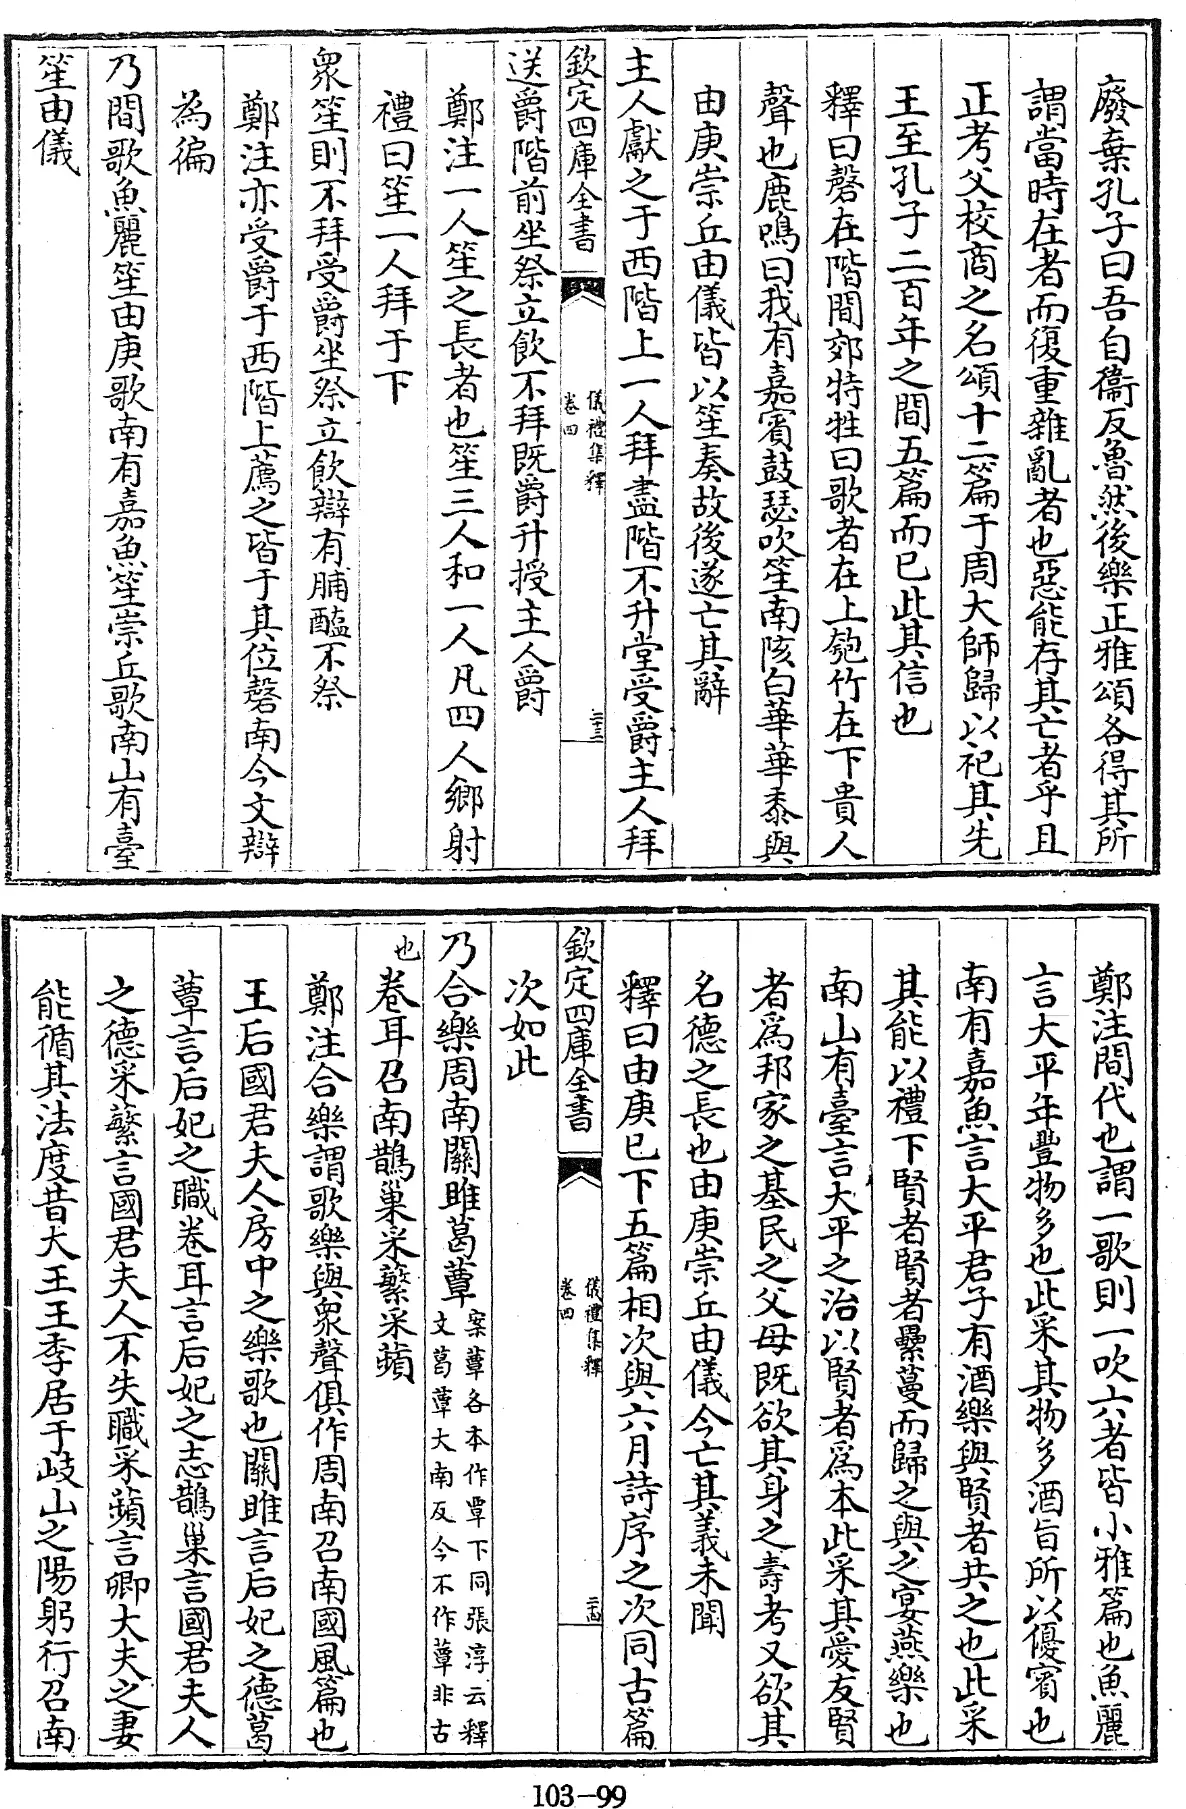 廢棄孔子曰吾自衞反魯然後樂正雅頌各得其所
謂當時在者而復重雜亂者也惡能存其亡者乎且
正考父校商之名頌十二篇于周大師歸以祀其先
王至孔子二百年之間五篇而已此其信也
釋曰磬在階間郊特牲曰歌者在上匏竹在下貴人
聲也鹿鳴曰我有嘉賓鼓瑟吹笙南陔白華華黍與
由庚崇丘由儀皆以笙奏故後遂亡其辭
主人獻之于西階上一人拜盡階不升堂受爵主人拜
欽定四庫全書
儀禮集釋
卷四
二十三
送爵階前坐祭立飲不拜既爵升授主人爵
鄭注一人笙之長者也笙三人和一人凡四人鄉射
禮曰笙一人拜于下
衆笙則不拜受爵坐祭立飲辯有脯醢不祭
鄭注亦受爵于西階上薦之皆于其位磬南今文辯
為徧
乃間歌魚麗笙由庚歌南有嘉魚笙崇丘歌南山有臺
笙由儀
鄭注間代也謂一歌則一吹六者皆小雅篇也魚麗
言大平年豐物多也此采其物多酒旨所以優賓也
南有嘉魚言大平君子有酒樂與賢者共之也此采
其能以禮下賢者賢者纍蔓而歸之與之宴燕樂也
南山有臺言大平之治以賢者爲本此采其愛友賢
者爲邦家之基民之父母既欲其身之壽考又欲其
名德之長也由庚崇丘由儀今亡其義未聞
釋曰由庚已下五篇相次與六月詩序之次同古篇
欽定四庫全書
儀禮集釋
卷四
二十四
次如此
乃合樂周南關雎葛蕈案蕈各本作覃下同張淳云釋
文葛蕈大南反今不作蕈非古
也卷耳召南鵲巢采蘩采蘋
鄭注合樂謂歌樂與衆聲俱作周南召南國風篇也
王后國君夫人房中之樂歌也關雎言后妃之德葛
蕈言后妃之職卷耳言后妃之志鵲巢言國君夫人
之德采蘩言國君夫人不失職采蘋言卿大夫之妻
能循其法度昔大王王季居于岐山之陽躬行召南
103-99